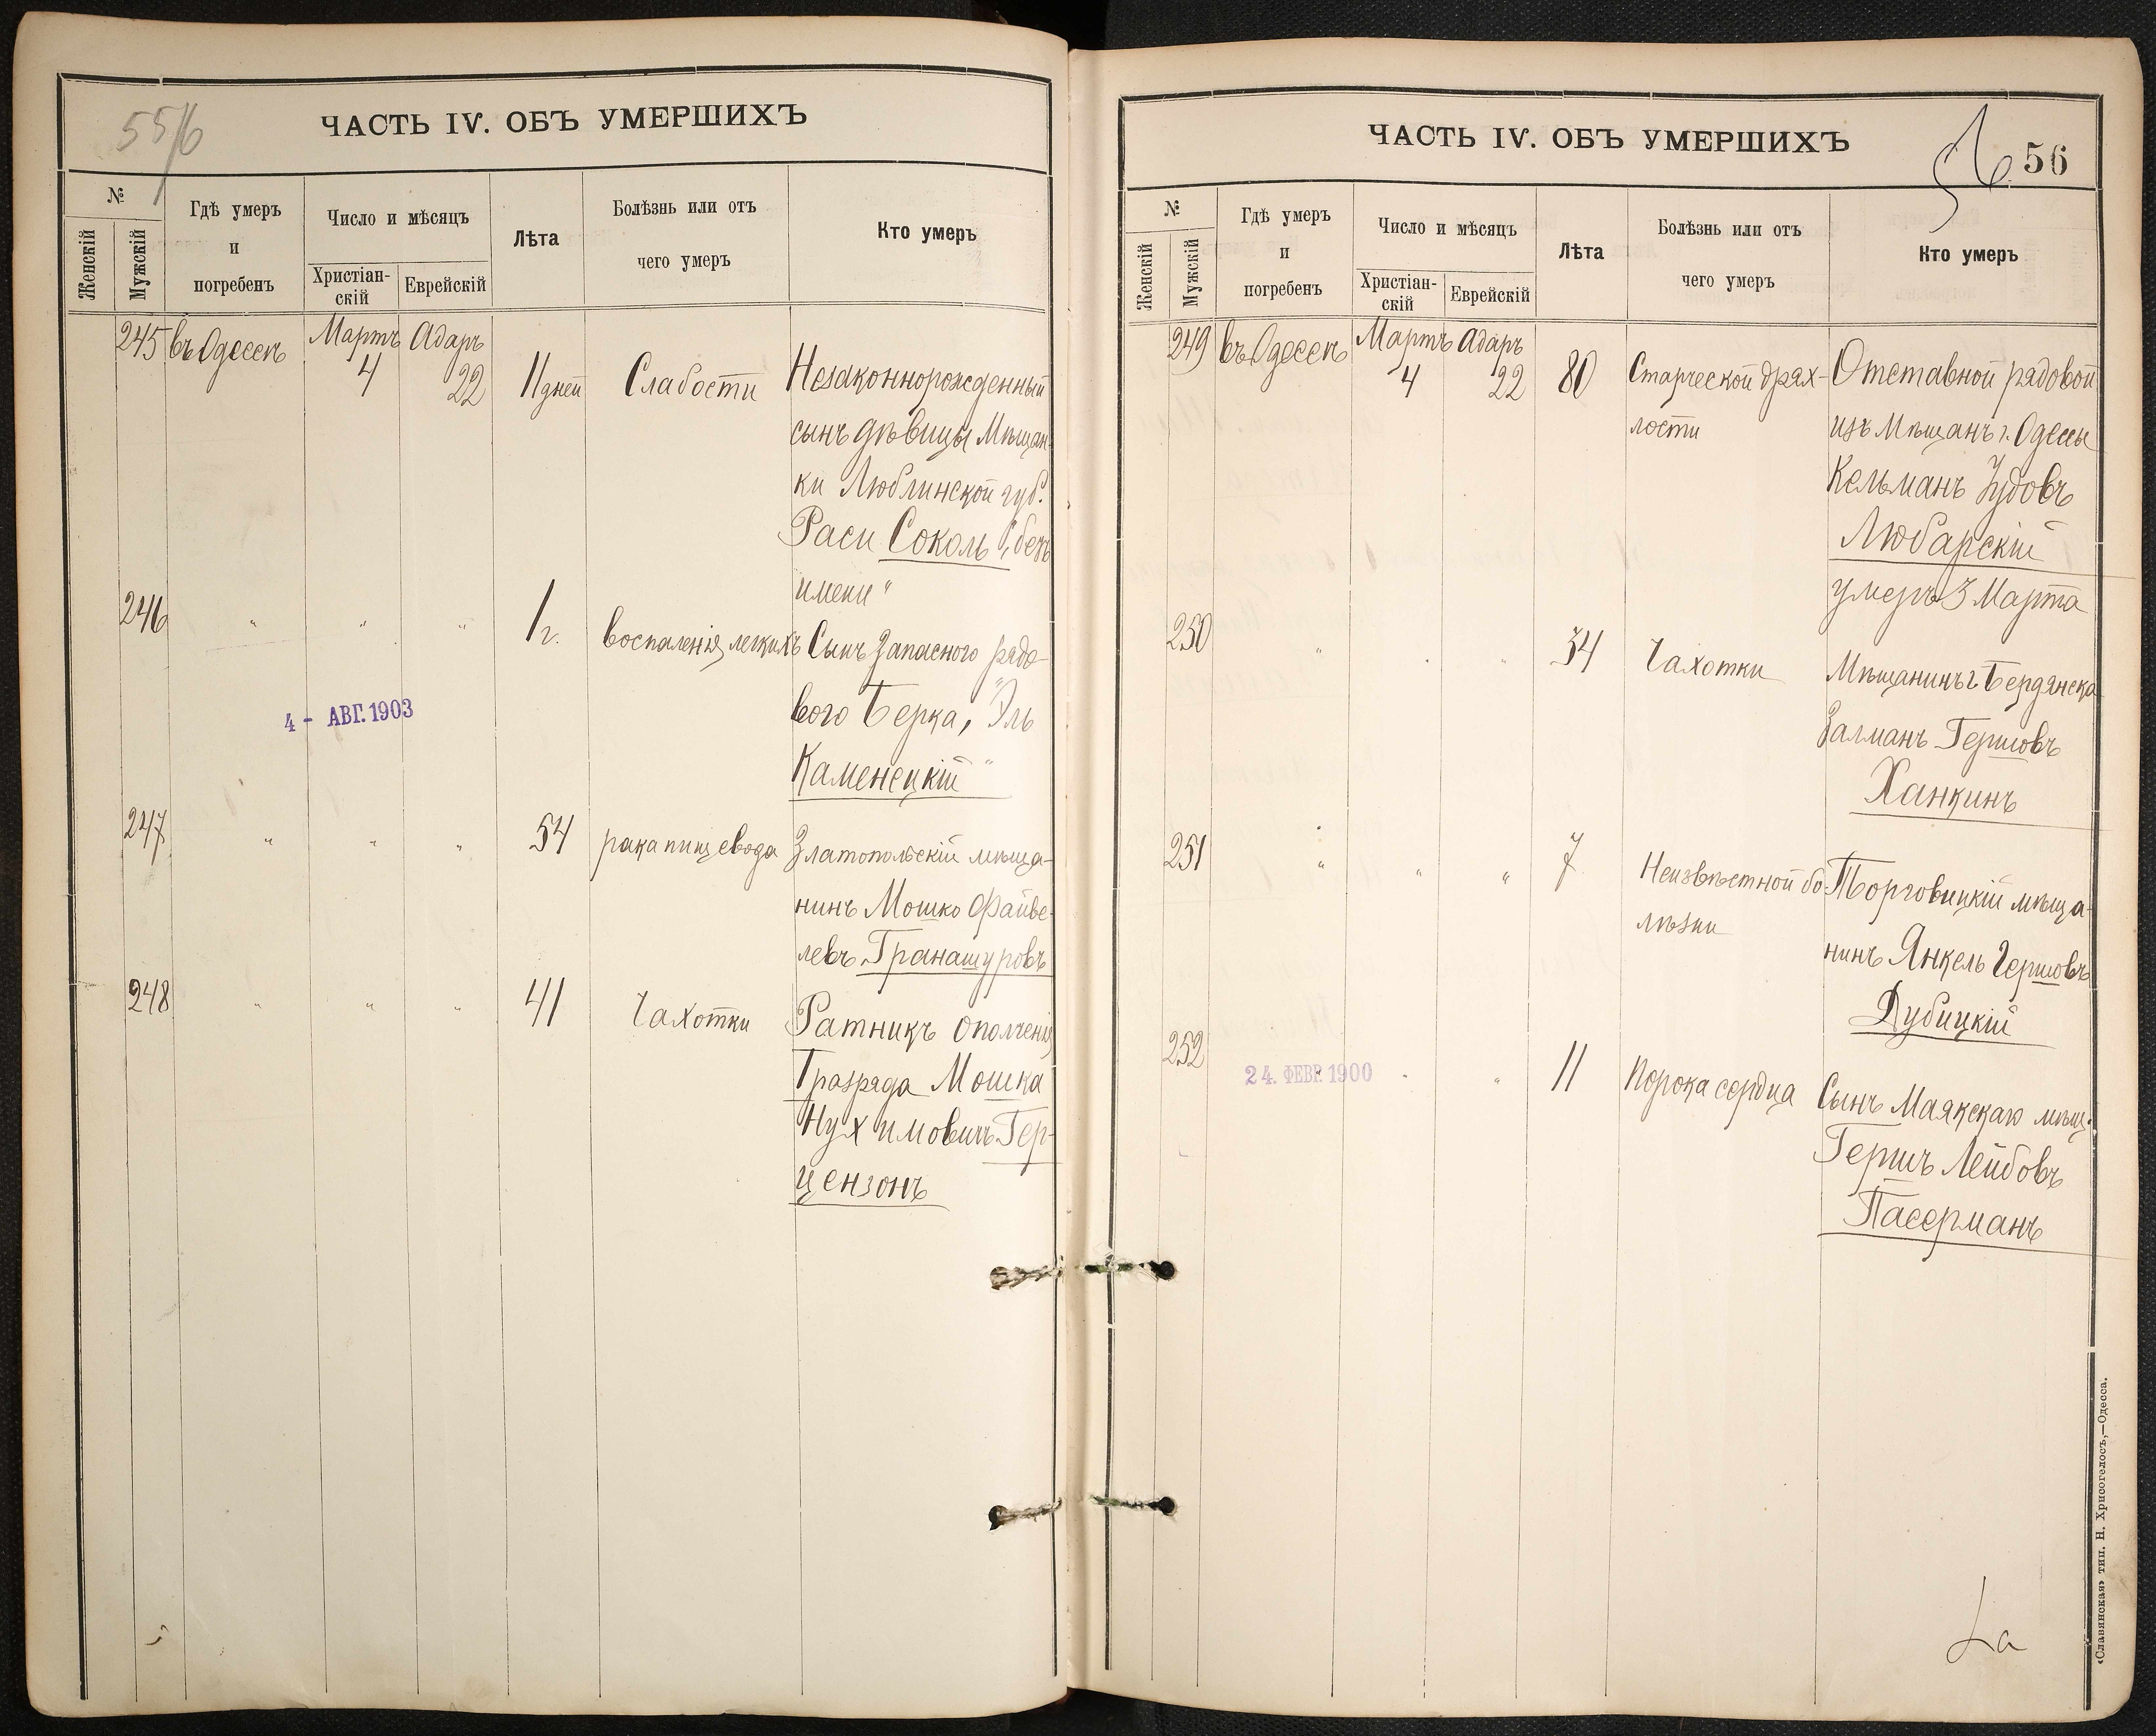 55/6
ЧАСТЬ IV. ОБЪ УМЕРШИХЪ
№
Женскій
Мужскій
Гдѣ умеръ
и
погребенъ
Число и мѣсяцъ
Христіан-
скій
Еврейскій
Лѣта
Болѣзнь или отъ
чего умеръ
Кто умеръ
245 въ Одессѣ Мартъ Адаръ
4 22 11 дней Слабости Незаконнорожденный
сынъ дѣвицы Мѣщан
ки Люблинской губ.
Раси Соколъ "безъ
имени"
246 " " " 1 г. воспаленія легкихъ Сынъ Запасного рядо-
вого Берка, "Эль
Каменецкій"
4 - АВГ. 1903
247 " " " 54 рака пищевода Златопольскій мѣща-
нинъ Мошко Файве-
левъ Гранатуровъ
248 " " " 41 Чахотки Ратникъ ополченія
I разряда Мошка
Нухимовичъ Гер-
цензонъ
ЧАСТЬ IV. ОБЪ УМЕРШИХЪ
56 56
№
Женскій
Мужскій
Гдѣ умеръ
и
погребенъ
Число и мѣсяцъ
Христіан-
скій
Еврейскій
Лѣта
Болѣзнь или отъ
чего умеръ
Кто умеръ
249 въ Одессѣ Мартъ Адаръ
4 22 80 Старческой дрях- Отставной рядовой
лости изъ Мѣщанъ г. Одессы
Кельманъ Іудовъ
Любарскій
умеръ 3 Марта
250 " " " 34 Чахотки Мѣщанинъ г Бердянска
Залманъ Гершовъ
Ханкинъ
251 " " " 7 Неизвѣстной бо Торговицкій мѣща-
лѣзни нинъ Янкель Гершовъ
Дубицкій
252 24. ФЕВР. 1900 " " 11 Порока сердца Сынъ Маякскаго мѣщ.
Гершъ Лейбовъ
Пасерманъ
«Славянская» тип. Н. Хрисогелосъ,—Одесса.